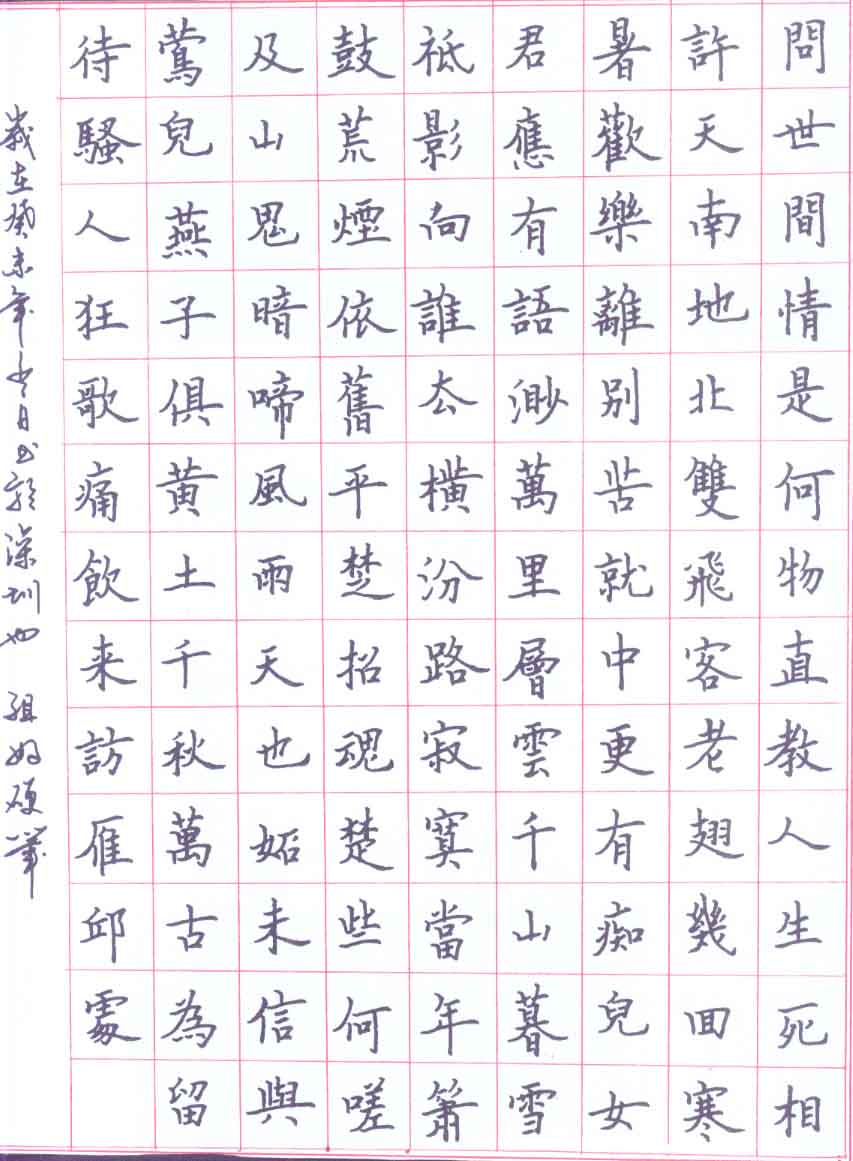 問世間情是何物直教人生死相
許天南地北雙飛客老翅幾回寒
暑歡樂離別苦就中更有痴兒女
君應有語渺萬里層雲千山暮雪
祇影向誰去橫汾路寂寞當年簫
鼓荒煙依舊平楚招魂楚些何嗟
及山鬼暗啼風雨天也妬未信與
鶯兒燕子俱黄土千秋萬古為留
待騷人狂歌痛飲来訪雁邱處
歲在癸未年月書於深圳硬筆